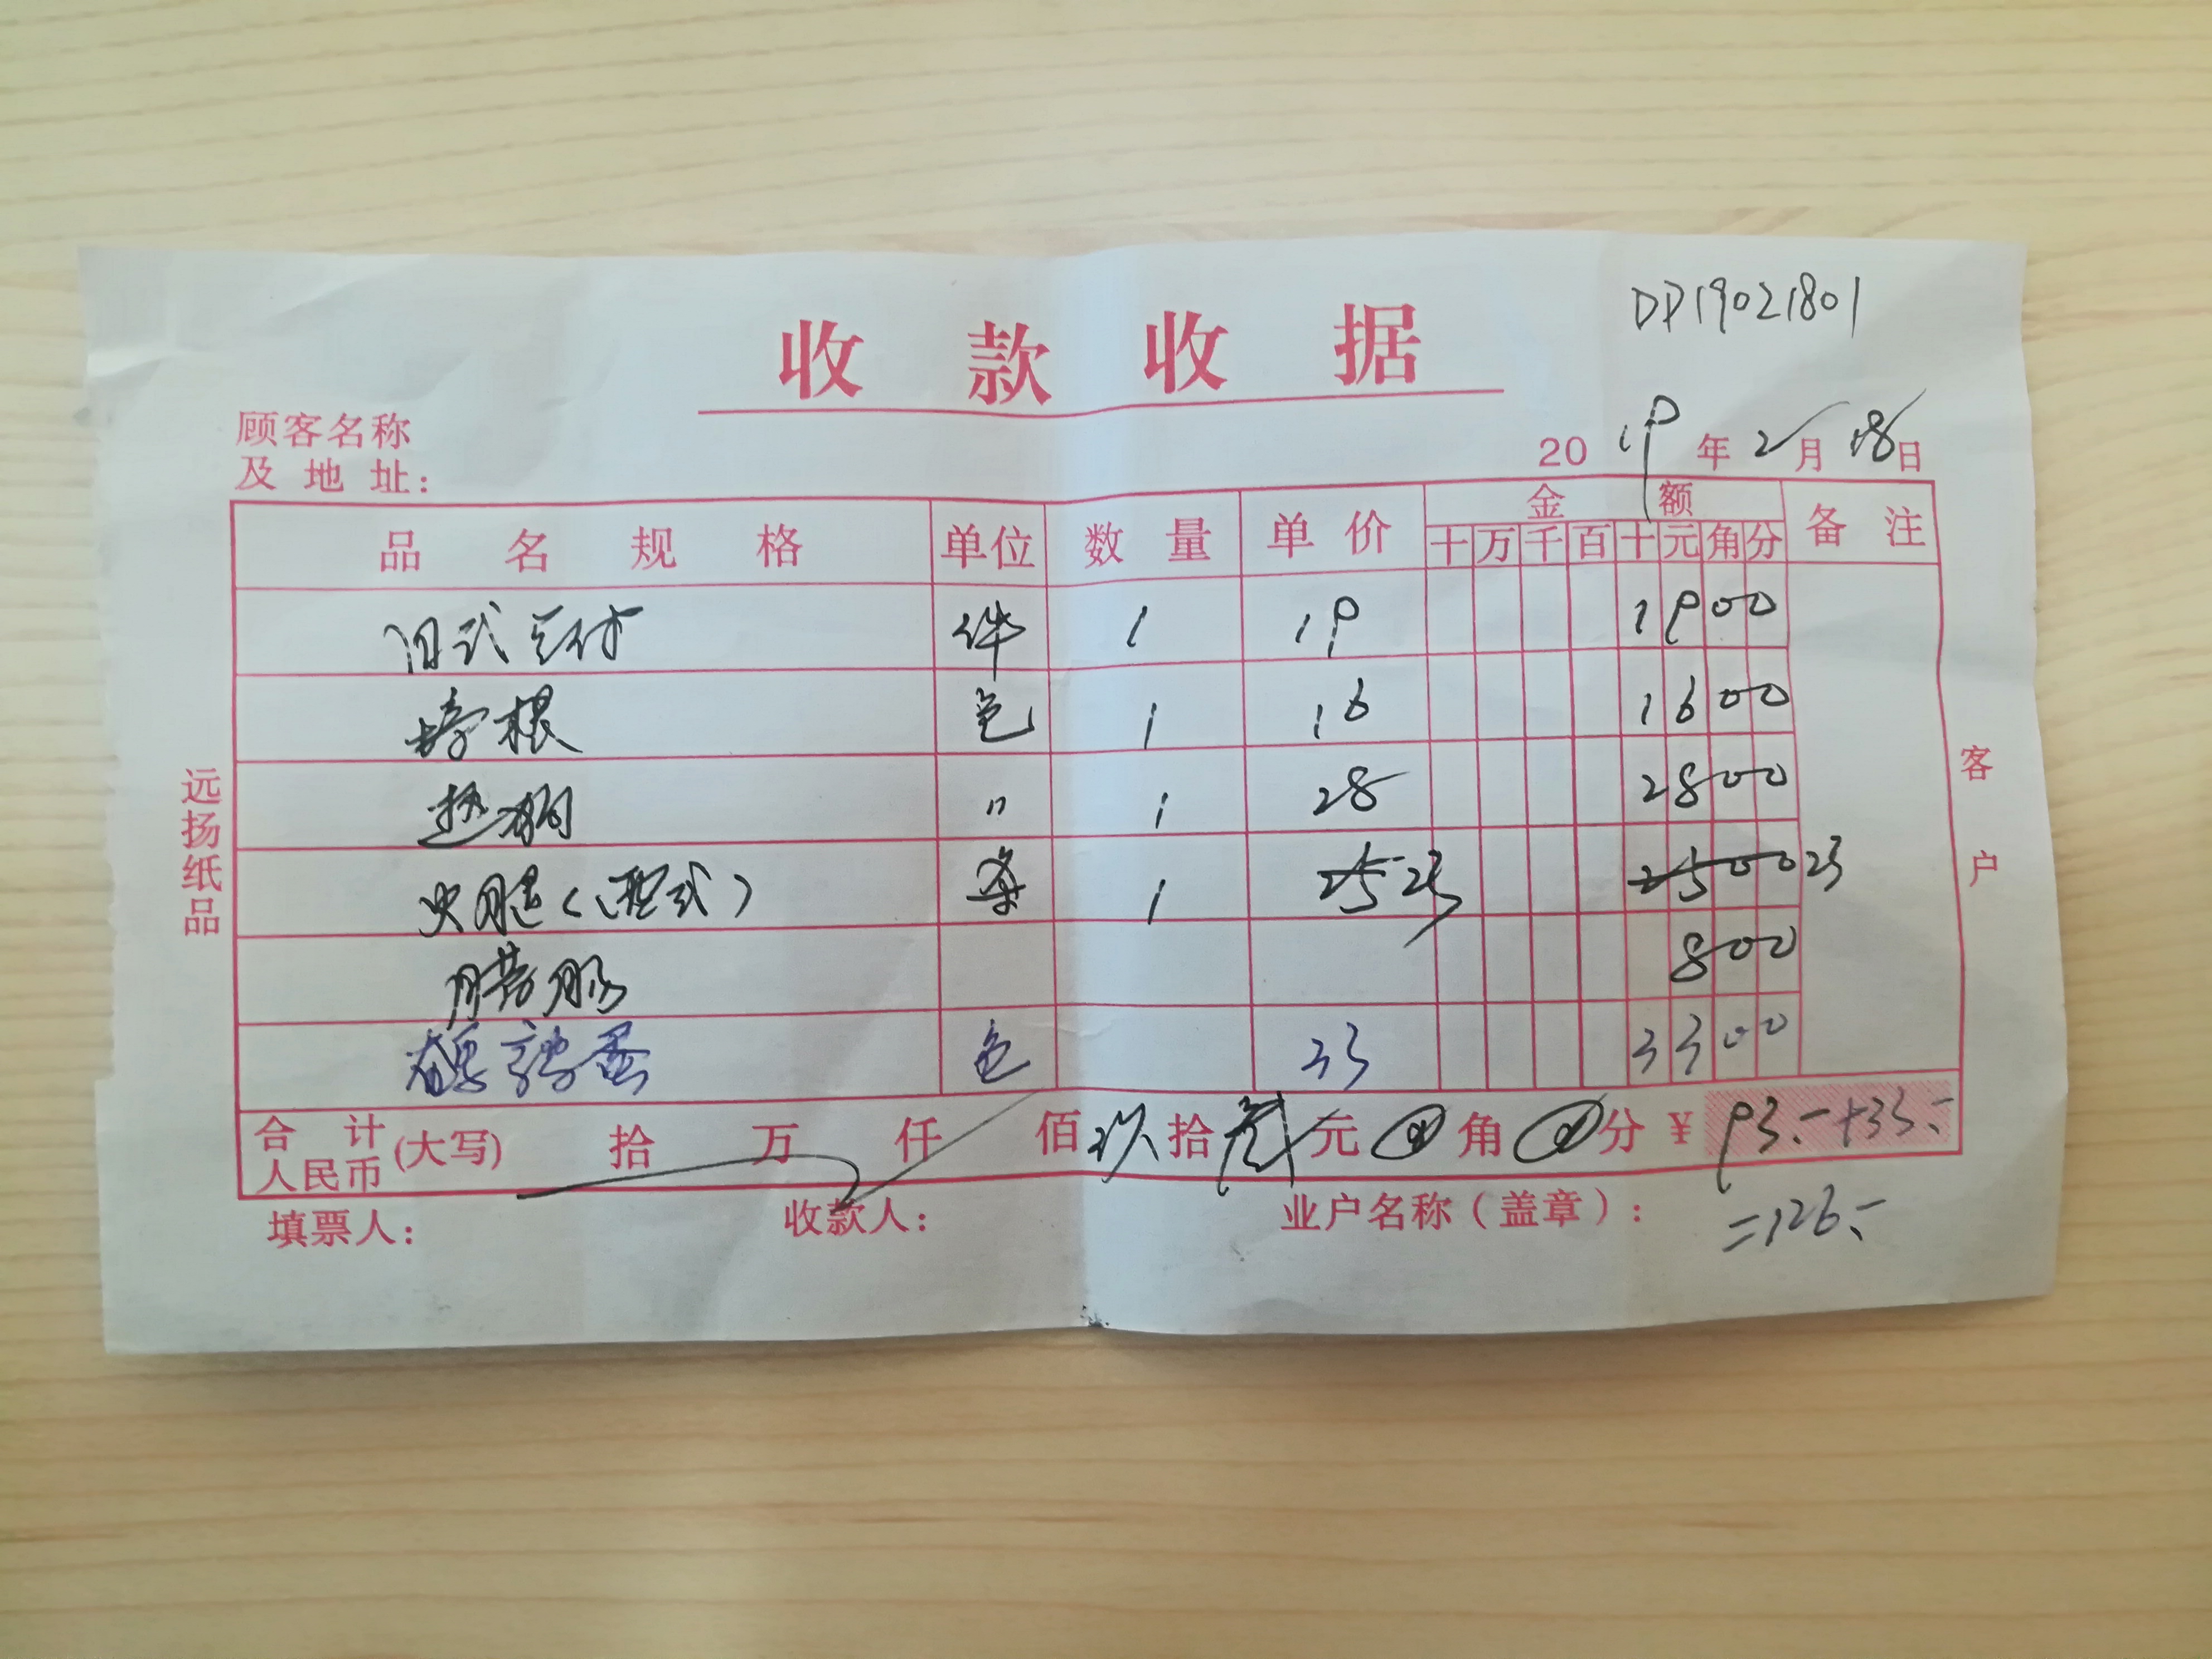 DP19021801
收款收据
顾客名称
及地址：
2019年2月18日
品名规格 单位 数量 单价 金额 备注
十万千百十元角分
旧式 件 1 19 1900
培根 包 1 16 1600
热狗 〃 1 28 2800
火腿（西式） 条 1 25 23 2500 23
腊肠 800
鹌鹑蛋 包 33 3300
合计人民币(大写) 拾 万 仟 佰 玖拾叁元 0角 0分 ¥ 93.-+33.-
=126.-
填票人： 收款人： 业户名称（盖章）：
远扬纸品
客户